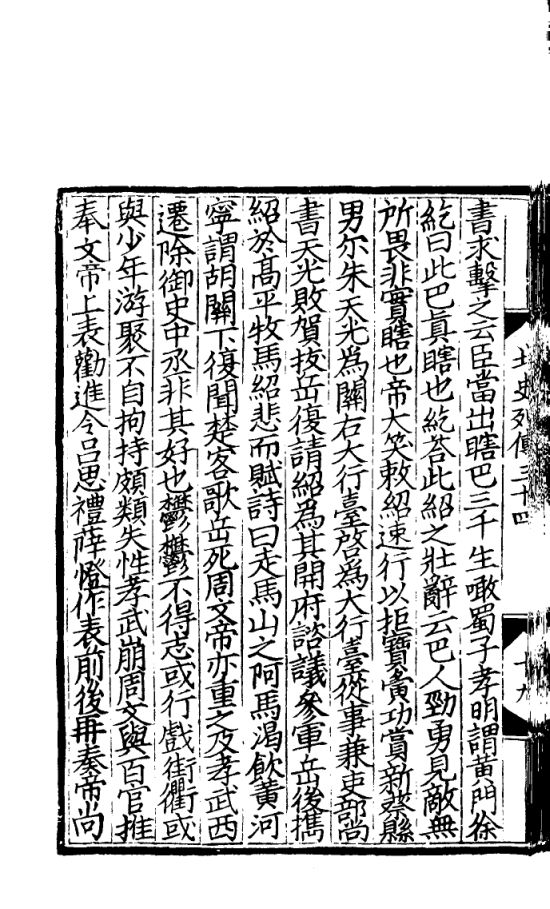 書求擊之云臣當出瞎巴三千生噉蜀子孝明謂黃門徐
紇曰此巴真瞎也紇荅此紹之壯辭云巴人勁勇見敵無
所畏非實瞎也帝大笑敕紹速行以拒寶夤功賞新蔡縣
男尔朱天光為關右大行臺啓為大行臺從事兼吏部尚
書天光敗賀拔岳復請紹為其開府諮議叅軍岳後攜
紹於高平牧馬紹悲而賦詩曰走馬山之阿馬渴飲黃河
寧謂胡關下復聞楚客歌岳死周文帝亦重之及孝武西
遷除御史中丞非其好也鬱鬱不得志或行戲街衢或
與少年游聚不自拘持頗類失性孝武崩周文與百官推
奉文帝上表勸進令呂思禮薛憕作表前後再奏帝尚
北史列傳三十四
十九